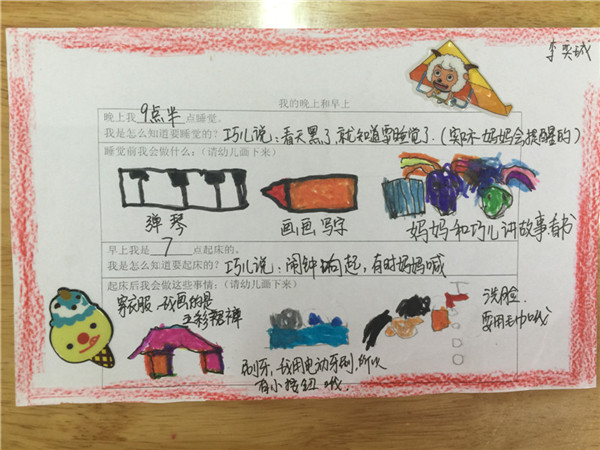 李奕诚
我的晚上和早上
晚上我 9点半 点睡觉。
我是怎么知道要睡觉的?巧儿说:看天黑了就知道要睡觉了.(实际妈妈会提醒的)
睡觉前我会做什么:(请幼儿画下来)
弹琴
画画写字
妈妈和巧儿讲故事.看书
早上我是 7 点起床的。
我是怎么知道要起床的?巧儿说:闹钟响起,有时妈妈喊
起床后我会做这些事情:(请幼儿画下来)
穿衣服.我画的是
五彩裙裤
刷牙,我用电动牙刷,所以
有小按钮哦
洗脸
要用毛巾哦